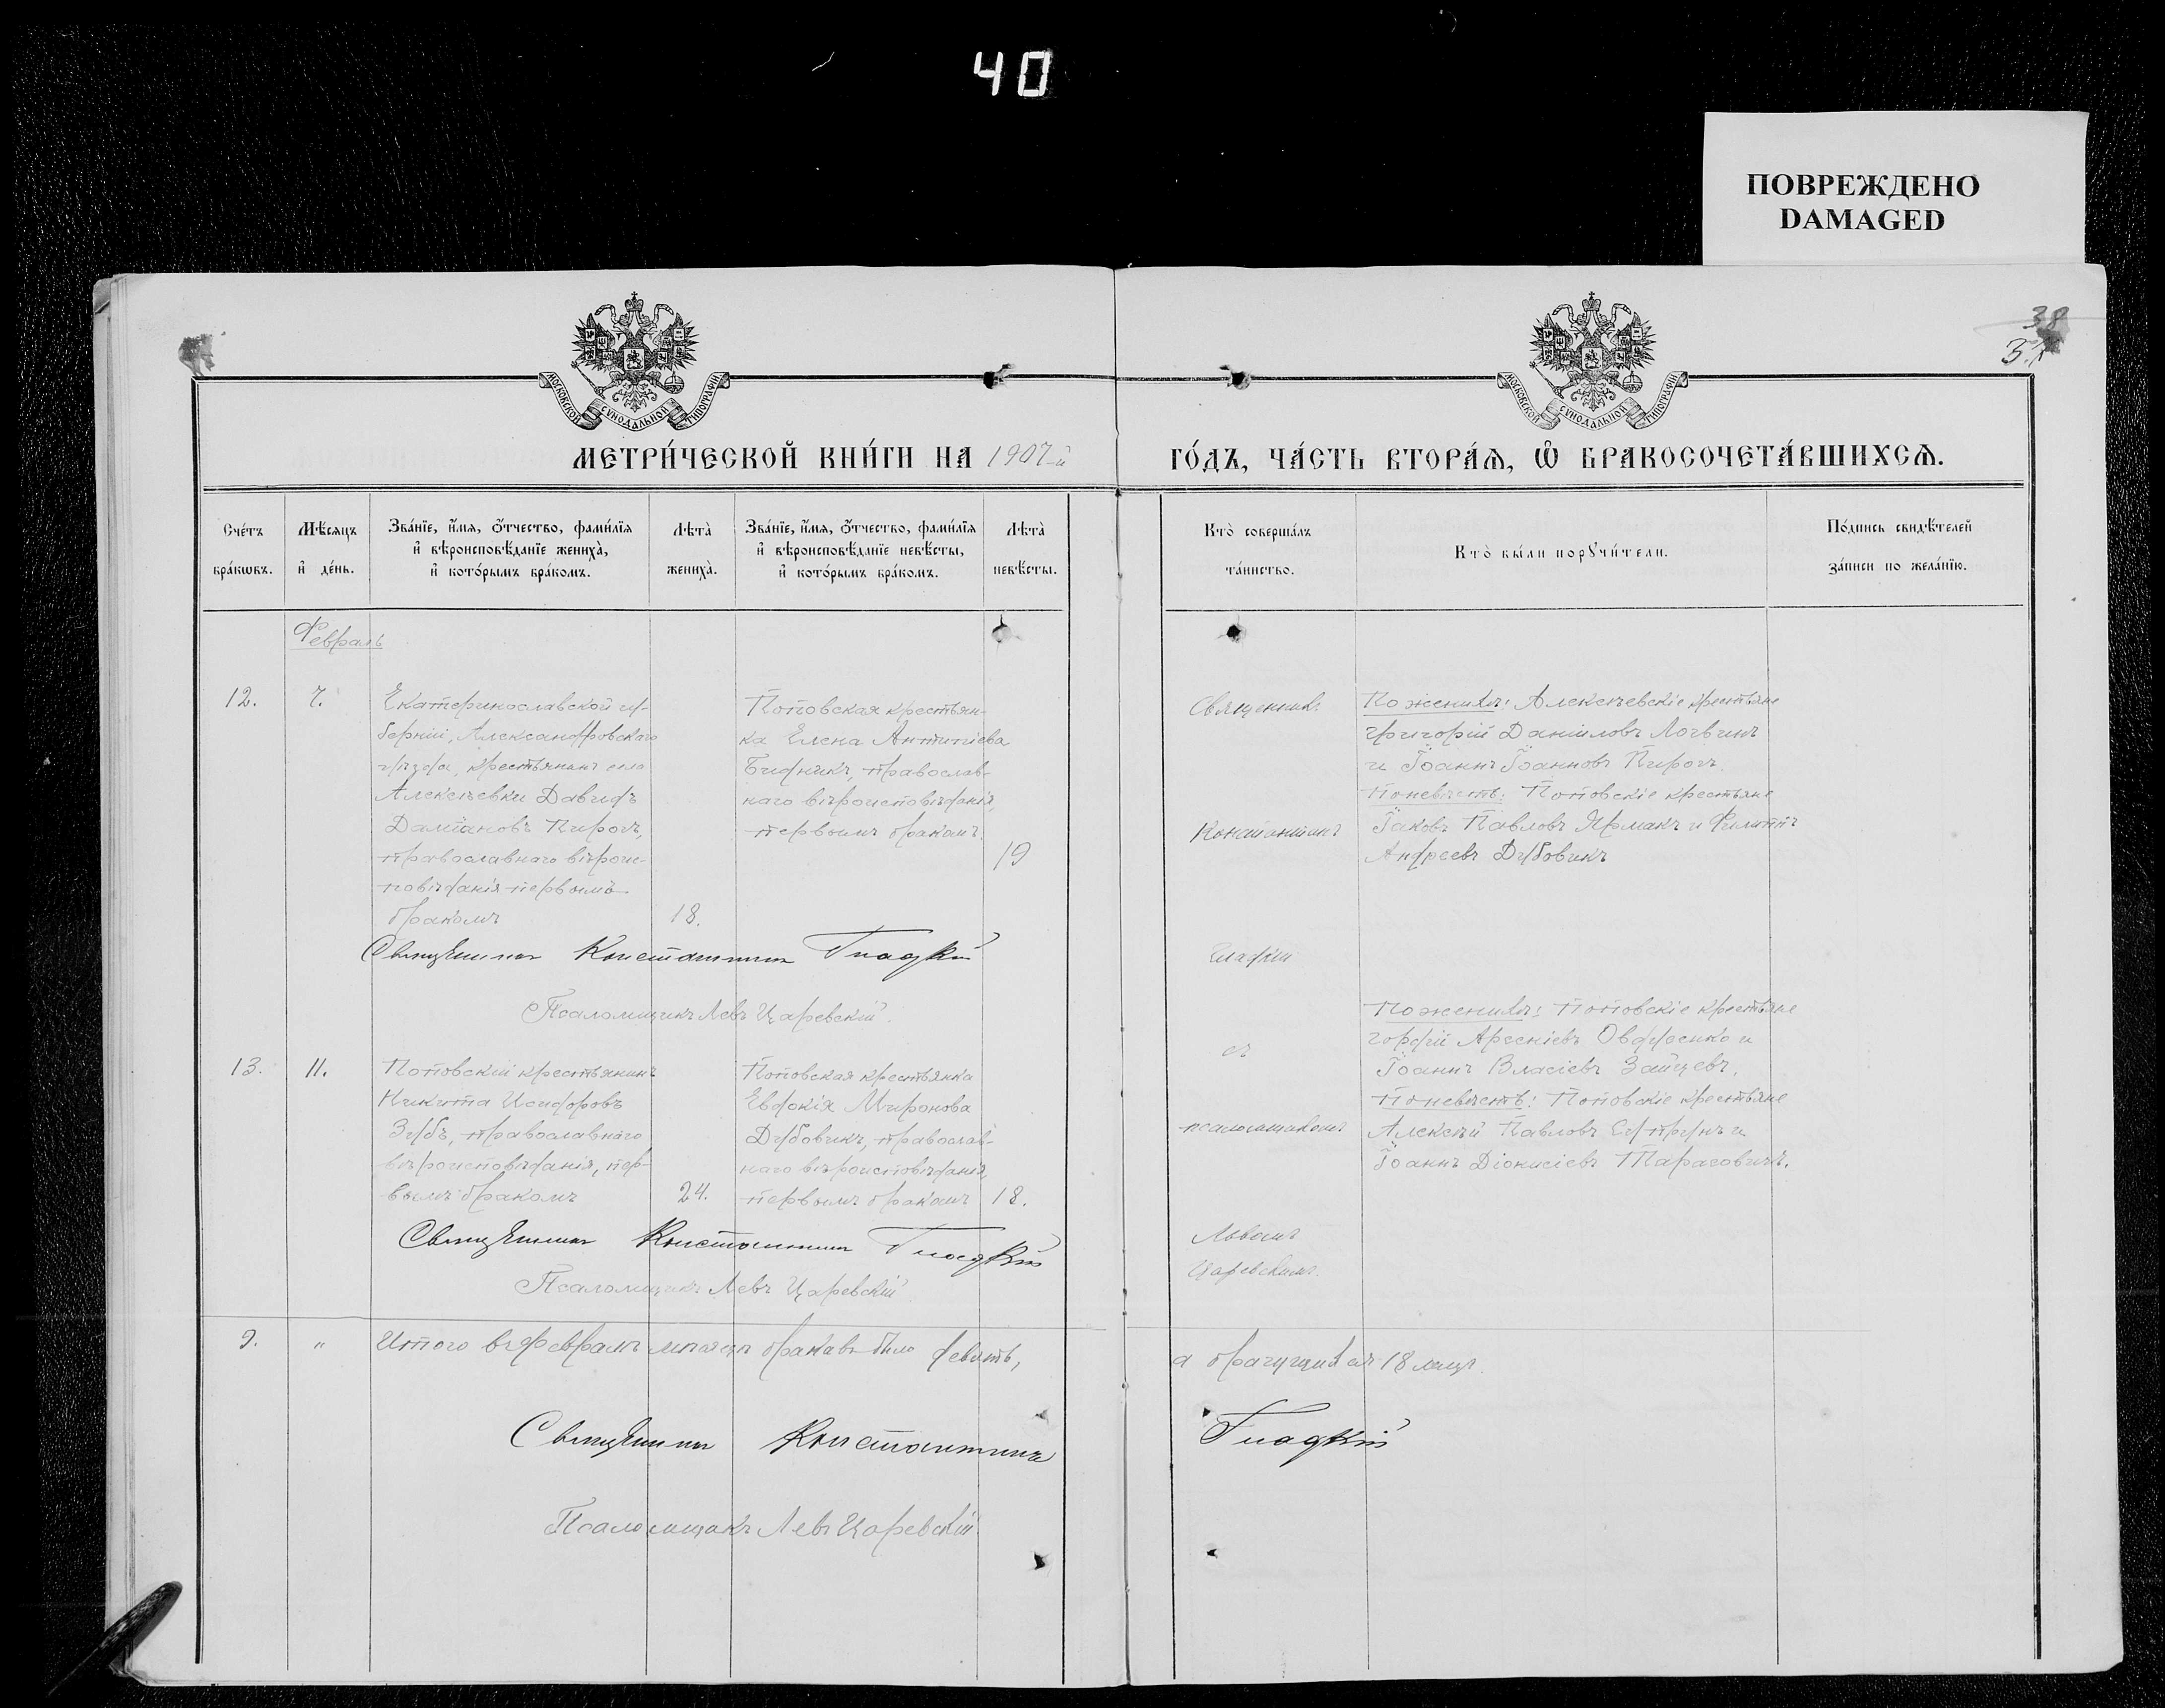 40
ПОВРЕЖДЕНО
DAMAGED
38
МОСКОВСКОЙ СУНОДАЛЬНОЙ ТИПОГРАФІИ
МОСКОВСКОЙ СУНОДАЛЬНОЙ ТИПОГРАФІИ
МЕТРИ́ЧЕСКОЙ КНИ́ГИ НА 1907-й ГО́ДЪ, ЧА́СТЬ ВТОРА́Ѧ, Ѡ҆ БРАКОСОЧЕТА́ВШИХСѦ.
Сче́тъ бра́кѡвъ.
Мѣ́сяцъ и҆ де́нь.
Зва́нїе, и҆́мя, ѻ҆́тчество, фами́лїя и҆ вѣроисповѣ́данїе женихà, и҆ кото́рымъ бра́комъ.
Лѣтà женихà.
Зва́нїе, и҆́мя, ѻ҆́тчество, фами́лїя и҆ вѣроисповѣ́данїе невѣ́сты, и҆ кото́рымъ бра́комъ.
Лѣтà невѣ́сты.
Кто̀ соверша́лъ та́инство.
Кто̀ бы́ли порꙋчи́тели.
По́дпись свидѣ́телей за́писи по жела́нїю.
Февраль
12.
7.
Екатеринославской гу-
берніи, Александровскаго
уѣзда, крестьянинъ села
Алексѣевки Давидъ
Даміановъ Пирогъ,
православнаго вѣроис-
повѣданія первымъ
бракомъ
18.
Поповская крестьян-
ка Елена Антипіева
Бидникъ, православ-
наго вѣроисповѣданія,
первымъ бракомъ.
19
Священникъ
Константинъ
Гладкій
По женихѣ: Алексѣевскіе крестьяне
Григорій Даніиловъ Логвинъ
и Іоаннъ Іоанновъ Пирогъ.
По невѣстѣ: Поповскіе крестьяне
Іаковъ Павловъ Ярмакъ и Филиппъ
Андреевъ Дубовикъ
Священникъ Константинъ Гладкій
Псаломщикъ Левъ Царевскій.
13.
11.
Поповскій крестьянинъ
Никита Исидоровъ
Зубъ, православнаго
вѣроисповѣданія, пер-
вымъ бракомъ
24.
Поповская крестьянка
Евдокія Миронова
Дубовикъ, православ-
наго вѣроисповѣданія,
первымъ бракомъ
18.
съ
псаломщикомъ
Львомъ
Царевскимъ.
По женихѣ: Поповскіе крестьяне
Гордій Арсеніевъ Овдіенко и
Іоаннъ Власіевъ Зайцевъ.
По невѣстѣ: Поповскіе крестьяне
Алексѣй Павловъ и
Іоаннъ Діонисіевъ Тарасовичъ.
Священникъ Константинъ Гладкій
Псаломщикъ Левъ Царевскій
9.
"
Итого въ Февралѣ мѣсяцѣ браковъ было девять, а брачущихся 18 лицъ.
Священникъ Константинъ Гладкій
Псаломщикъ Левъ Царевскій